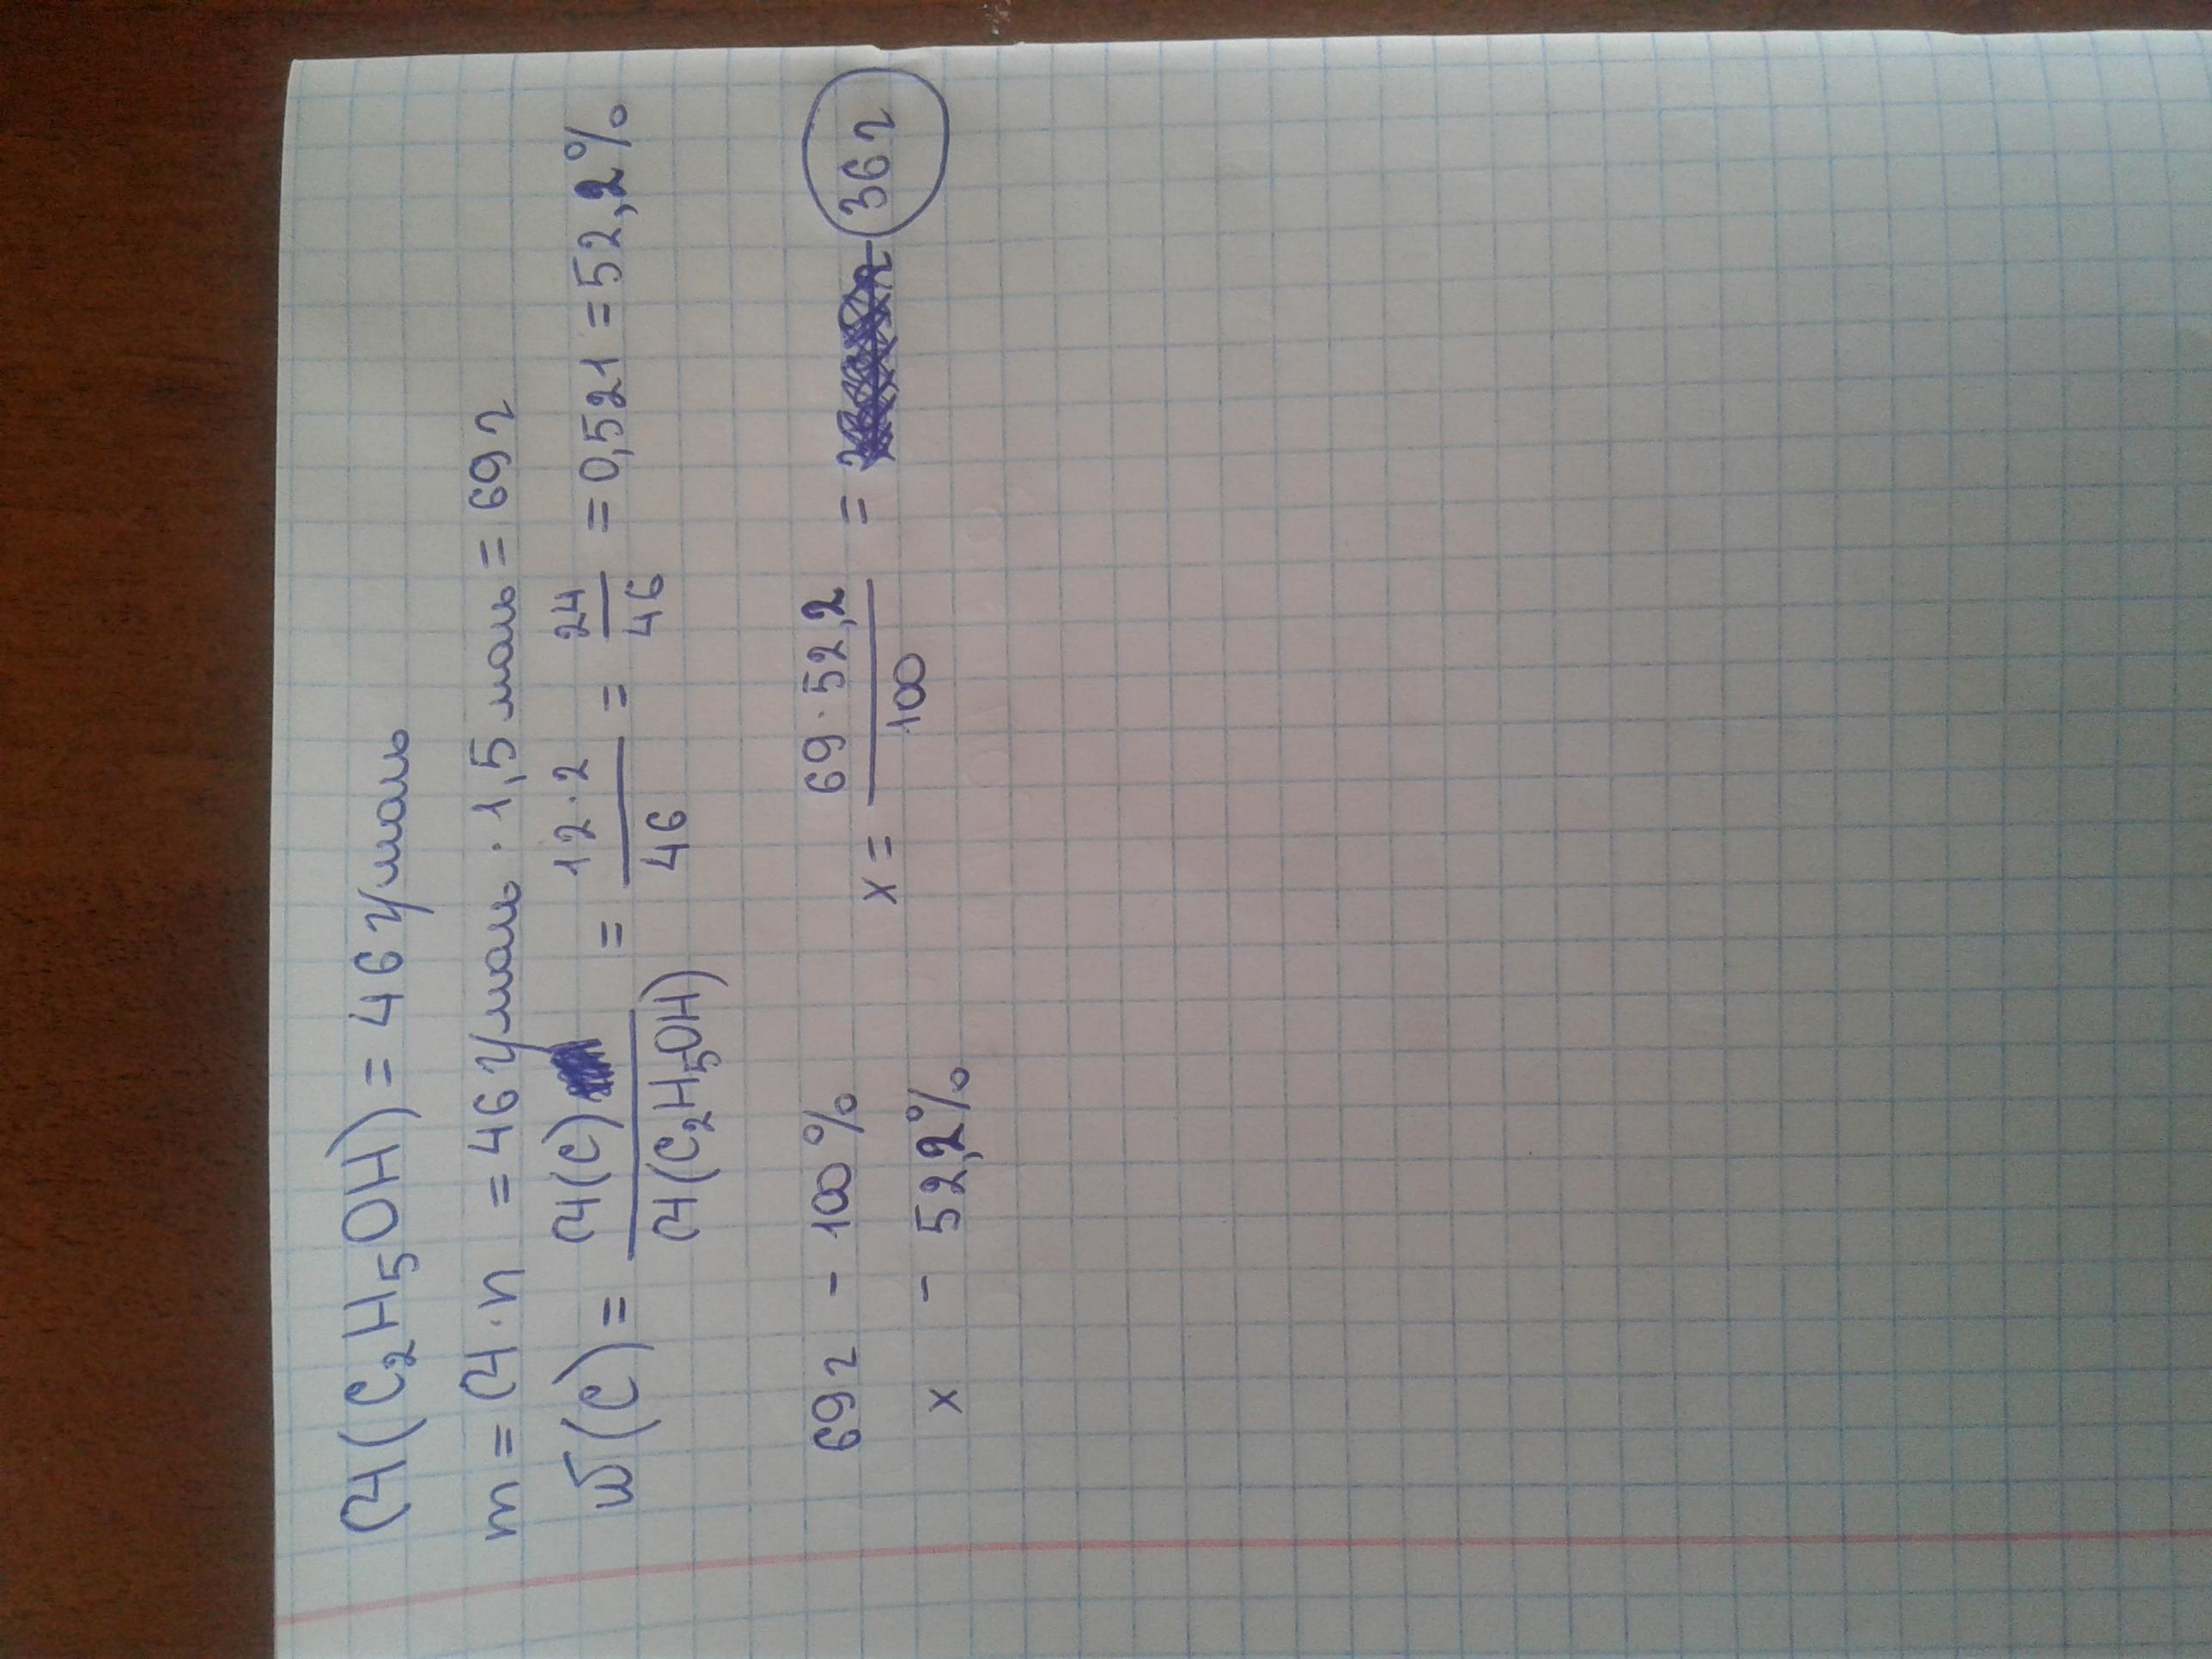 M(C₂H₅OH) = 46 г/моль
m = M · n = 46 г/моль · 1,5 моль = 69 г
ω(C) = M(C) / M(C₂H₅OH) = 12 · 2 / 46 = 24 / 46 = 0,521 = 52,2%
69 г - 100%
x - 52,2%
x = 69 · 52,2 / 100 = 36 г